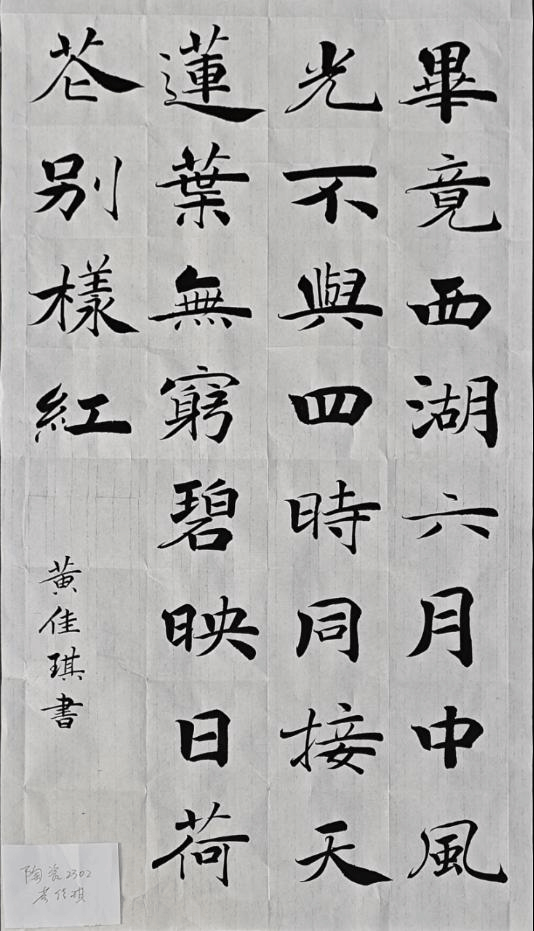 畢竟西湖六月中風
光不與四時同接天
蓮葉無窮碧映日荷
花別樣紅
黄佳琪書
陶瓷2302
黄佳琪